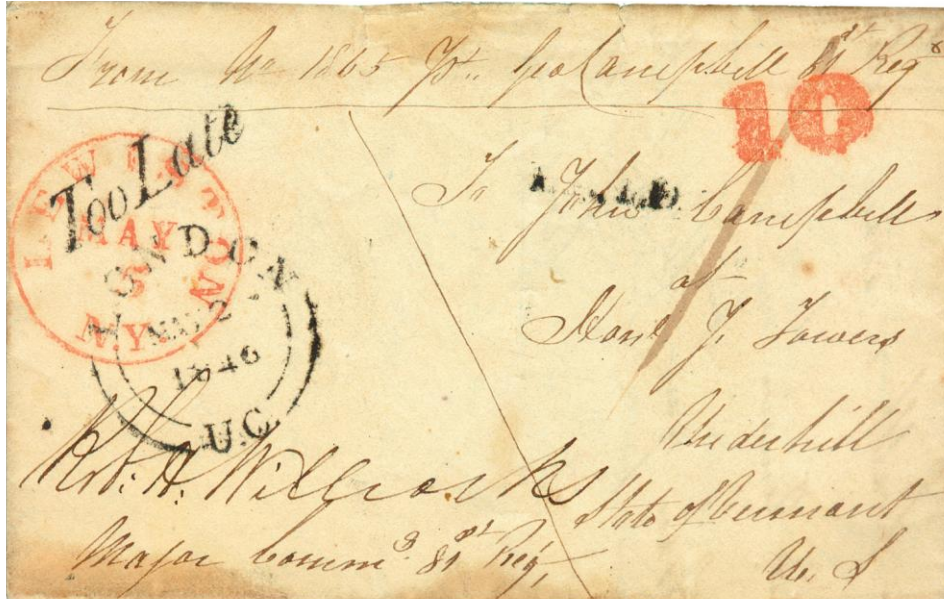 From No 1865 Pt. Geo Campbell 81st Regt
10
Too Late
LEWISTON
MAY
5
N.Y.
PAID
To John Campbell
at
Honl J. Towers
Underhill
State of Vermont
U. S
LONDON
MY 2
1846
U.C.
Robt. H. Willcocks
Major Commg 81st Regt